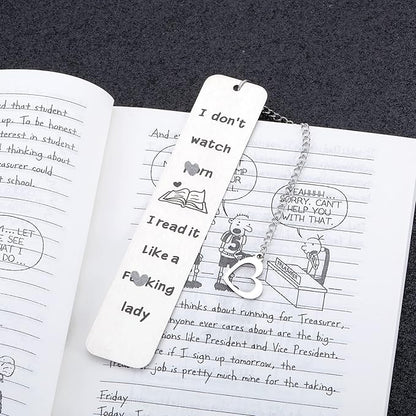 d that student
up. To be honest
terest in student
d thinking about
easurer could
t school.
LET
E SEE
WHAT I
DO...
I don't
watch
rn
I read it
Like a
F king
lady
And e
EAHHHH...
SORRY. CAN'T
HELP YOU
WITH THAT.
thinks about running for Treasurer,
yone ever cares about the big-
ions like President and Vice President.
e if I sign up tomorrow, the
r job is pretty much mine for the taking.
Friday